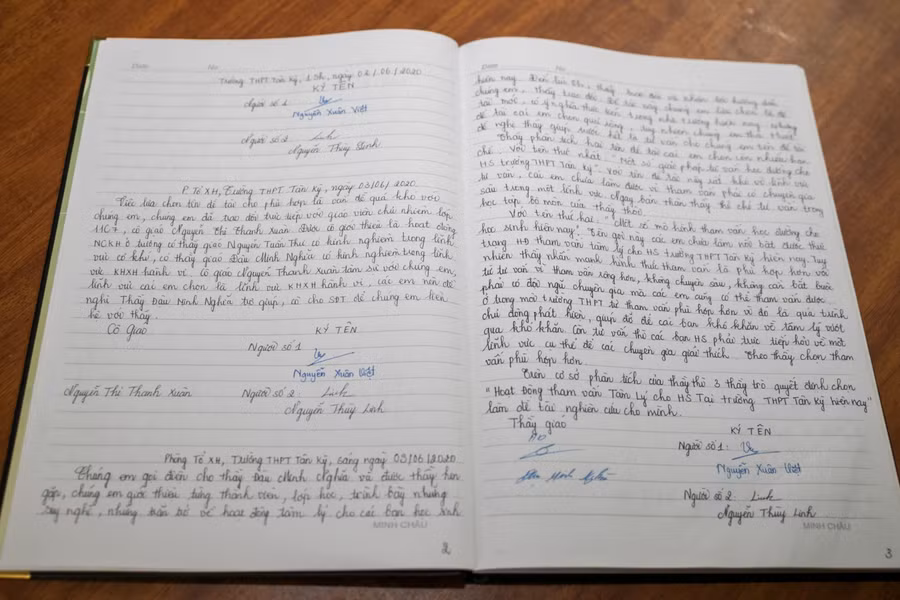 Date No
Trường THPT Tân Kỳ, 15h, ngày 02/06/2020
KÝ TÊN
Người số 1
Nguyễn Xuân Việt
Người số 2 Linh
Nguyễn Thùy Linh
P. Tổ XH, Trường THPT Tân Kỳ, ngày 03/06/2020
Việc lựa chọn tên đề tài cho phù hợp là vấn đề quá khó với
chúng em, chúng em đã trao đổi trực tiếp với giáo viên chủ nhiệm lớp
11C7, cô giáo Nguyễn Thị Thanh Xuân. Được cô giới thiệu là hoạt động
NCKH ở trường có thầy giáo Nguyễn Tuấn Thư có kinh nghiệm trong lĩnh
vực cơ khí, có thầy giáo Đậu Minh Nghĩa có kinh nghiệm trong lĩnh
vực KHXH hành vi. Cô giáo Nguyễn Thanh Xuân tâm sự với chúng em,
lĩnh vực các em chọn là lĩnh vực KHXH hành vi, các em nên đề
nghị Thầy Đậu Minh Nghĩa trợ giúp, cô cho SĐT để chúng em liên
hệ với thầy.
Cô Giáo KÝ TÊN
Người số 1
Nguyễn Xuân Việt
Nguyễn Thị Thanh Xuân Người số 2 Linh
Nguyễn Thùy Linh
Phòng Tổ XH, Trường THPT Tân Kỳ, sáng ngày 05/06/2020
Chúng em gọi điện cho thầy Đậu Minh Nghĩa và được thầy hẹn
gặp, chúng em giới thiệu từng thành viên, lớp học, trình bày những
suy nghĩ, những trăn trở về hoạt động tâm lý cho các bạn học sinh
MINH CHÂU
2
Date No
hiện nay. thầy trao đổi và nhận đã hướng dẫn
chúng em, thầy trao đổi: Đề tài này chúng em lựa chọn là đề
tài mới, có ý nghĩa thực tiễn trong nhà trường hiện nay nhưng
đề tài các em chọn quá rộng, tuy nhiên chúng em
đề nghị thầy giúp trước hết là tư vấn cho chúng em tên đề tài
Thầy phân tích hai tên đề tài các em chọn còn nhiều hạn
chế. Với tên thứ nhất: "Một số giải pháp tư vấn học đường cho
HS trường THPT Tân Kỳ". Với tên đề tài này rất khó về lĩnh vực
tư vấn, các em chưa làm được vì tham vấn phải có chuyên gia
sâu trong một lĩnh vực. Ngay bản thân thầy thì chỉ tư vấn trong
học tập bộ môn của thầy thôi.
Với tên thứ hai: "Một số mô hình tham vấn học đường cho
học sinh hiện nay". Tên gọi này các em chưa làm nổi bật được thực
trạng HĐ tham vấn tâm lý cho HS trường THPT Tân Kỳ hiện nay. Tuy
nhiên thầy nhấn mạnh hình thức tham vấn là phù hợp hơn với
tư tư vấn vì tham vấn rộng hơn, không chuyên sâu, không cần bắt buộc
phải có đội ngũ chuyên gia mà các em cũng có thể tham vấn được.
Ở trong môi trường THPT từ tham vấn phù hợp hơn vì đó là quá trình
chủ động phát hiện, giúp đỡ để các bạn khó khăn về tâm lý vượt
qua khó khăn. Còn tư vấn thì các bạn HS phải trực tiếp hỏi về một
lĩnh vực cụ thể để các chuyên gia giải thích. Theo thầy chọn tham
vấn phù hợp hơn.
Trên cơ sở phân tích của thầy thì 3 thầy trò quyết định chọn
"Hoạt động tham vấn Tâm Lý cho HS Tại trường THPT Tân Kỳ hiện nay"
làm đề tài nghiên cứu cho mình.
Thầy giáo KÝ TÊN
Người số 1:
Nguyễn Xuân Việt
Đậu Minh Nghĩa
Người số 2 Linh
Nguyễn Thùy Linh
MINH CHÂU
3